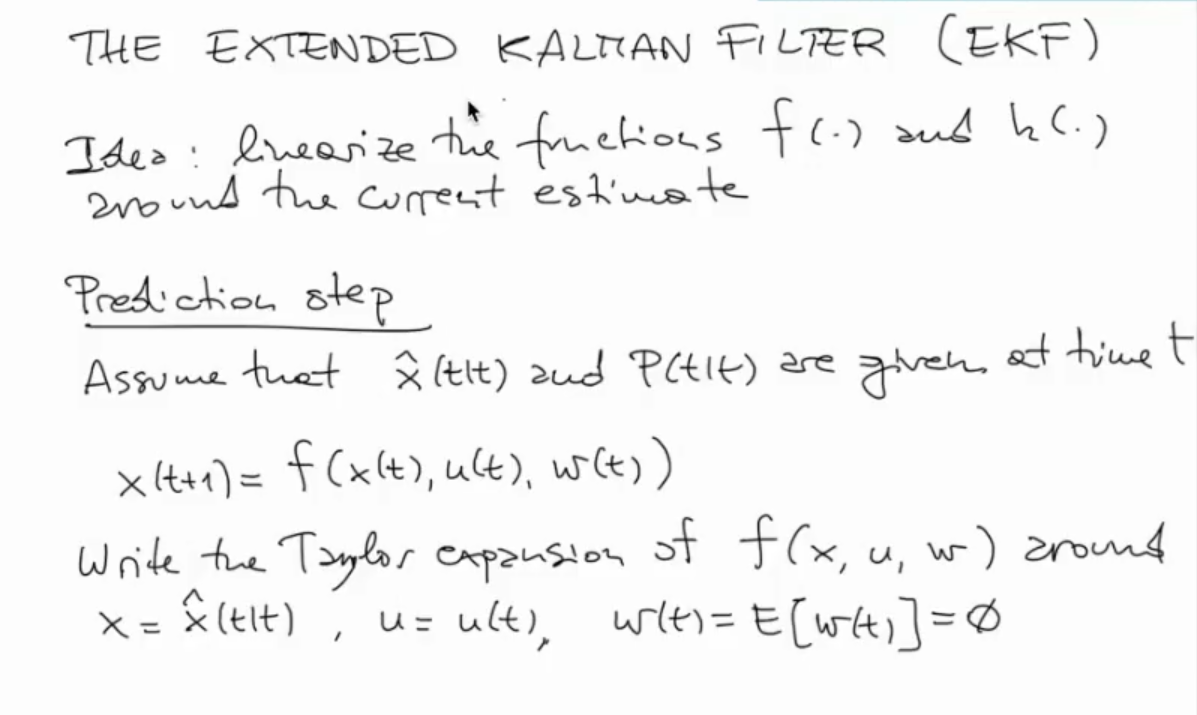 THE EXTENDED KALMAN FILTER (EKF)
Idea: linearize the functions f(.) and h(.)
around the current estimate
Prediction step
Assume that x̂(t|t) and P(t|t) are given at time t
x(t+1)= f(x(t), u(t), w(t))
Write the Taylor expansion of f(x, u, w) around
x = x̂(t|t) , u = u(t), w(t)= E[w(t)]=∅